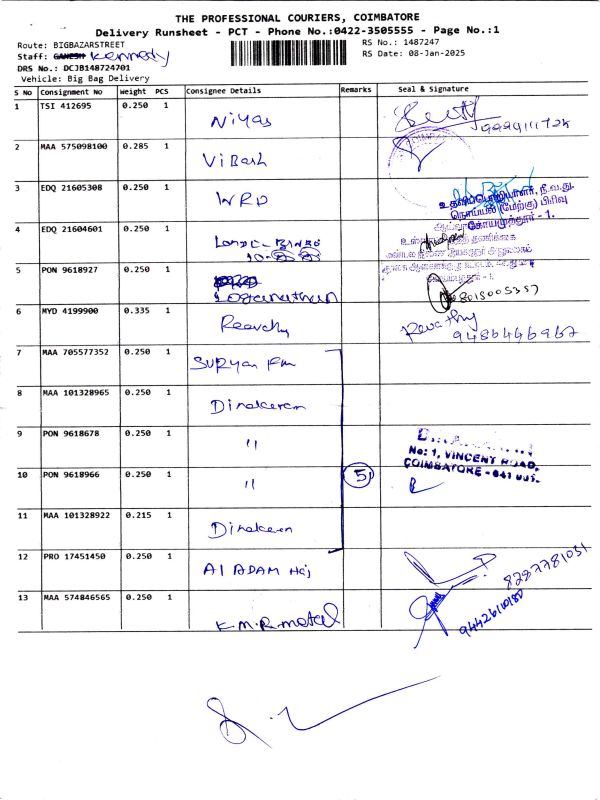 THE PROFESSIONAL COURIERS, COIMBATORE
Delivery Runsheet - PCT - Phone No.:0422-3505555 - Page No.:1
Route: BIGBAZARSTREET
RS No.: 1487247
Staff: GANESH Kennedy
RS Date: 08-Jan-2025
DRS No.: DCJB148724701
Vehicle: Big Bag Delivery
S No Consignment No Weight PCS Consignee Details Remarks Seal & Signature
1 TSI 412695 0.250 1 Niyas
2 MAA 575098100 0.285 1 Vibash
3 EDQ 21605308 0.250 1 WRD
உதவிப்பொறியாளர், நீ.வ.து.
நொய்யல் (மேற்கு) பிரிவு
கோயமுத்தூர் - 1.
4 EDQ 21604601 0.250 1
5 PON 9618927 0.250 1 Loganathan 8015005357
6 MYD 4199900 0.335 1 Revathy Revathy
9486446967
7 MAA 705577352 0.250 1 SURYan Fm
8 MAA 101328965 0.250 1 Dinakaran
9 PON 9618678 0.250 1 "
No: 1, VINCENT ROAD,
COIMBATORE - 641 001.
10 PON 9618966 0.250 1 " 5
11 MAA 101328922 0.215 1 Dinakaran
12 PRO 17451450 0.250 1 Al ADAM Haj 8297781031
13 MAA 574846565 0.250 1 K.M.R. metal 9442610180